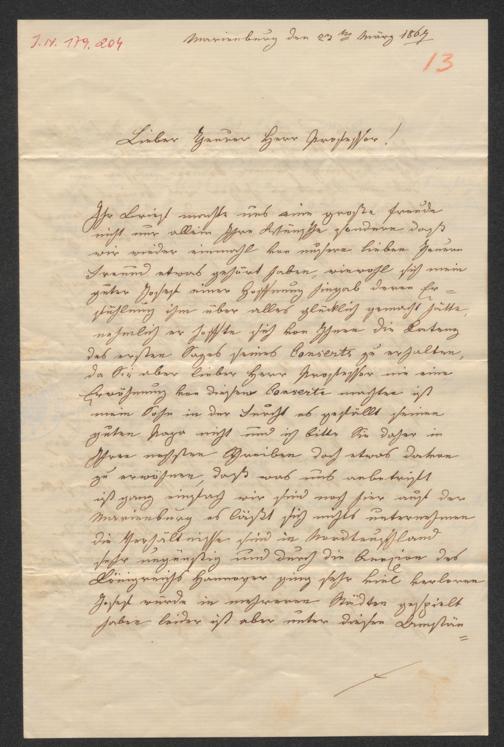 J.N. 179.204
Marienburg den 23ten März 1867
13
Lieber theurer Herr Professor!
Ihr Brief machte uns eine große Freude
nicht nur allein Ihre Wünsche sondern daß
wir wieder einmahl von unsern lieben theuren
Freund etwas gehört haben, wiewohl sich mein
guter Josef einer Hoffnung hingab deren Er=
fühlung ihm über alles glücklich gemacht hätte,
nehmlich er hoffte sich von Ihnen die
des ersten Satzes seines Concerts zu erhalten,
da Sie aber lieber Herr Professor nie eine
Erwähnung von diesem Concerte machten ist
mein Sohn in der Furcht es gefällt seinen
guten Papa nicht und ich bitte Sie daher in
Ihren nechsten Schreiben doch etwas davon
zu erwähnen, daß was uns anbetrifft
ist ganz einfach wir sind noch hier auf der
Marienburg es läßt sich nichts unternehmen
die Verhältnisse sind in Norddeutschland
sehr ungünstig und durch die des
Königreichs Hannover ging sehr viel verloren
Josef würde in mehreren Städten gespielt
haben leider ist aber unter diesen Umstän
=